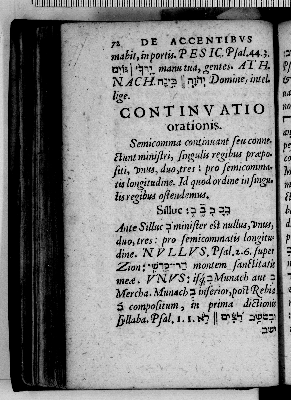 72 DE ACCENTIBVS
mabit, in portis. PESIC, Psal. 44. 3.
manu tua, gentes. ATH
NACH. Domine, intel
lige.
CONTINVATIO
orationis.
Semicomma continuant seu conne-
ctunt ministri, singulis regibus præpo-
siti, vnus, duo, tres: pro semicomma-
tis longitudine. Id quod ordine in singu-
lis regibus ostendemus.
Silluc:
Ante Silluc minister est nullus, vnus,
duo, tres: pro semicommatis longitu-
dine. NVLLVS, Psal. 2. 6. super
Zion; הַר־קָדְשִׁי: montem sanctitatis
meæ. VNUS: isq; Munach aut
Mercha. Munach inferior, post Rebia
compositum, in prima dictionis
syllaba. Psal. 1. 1. לֹא